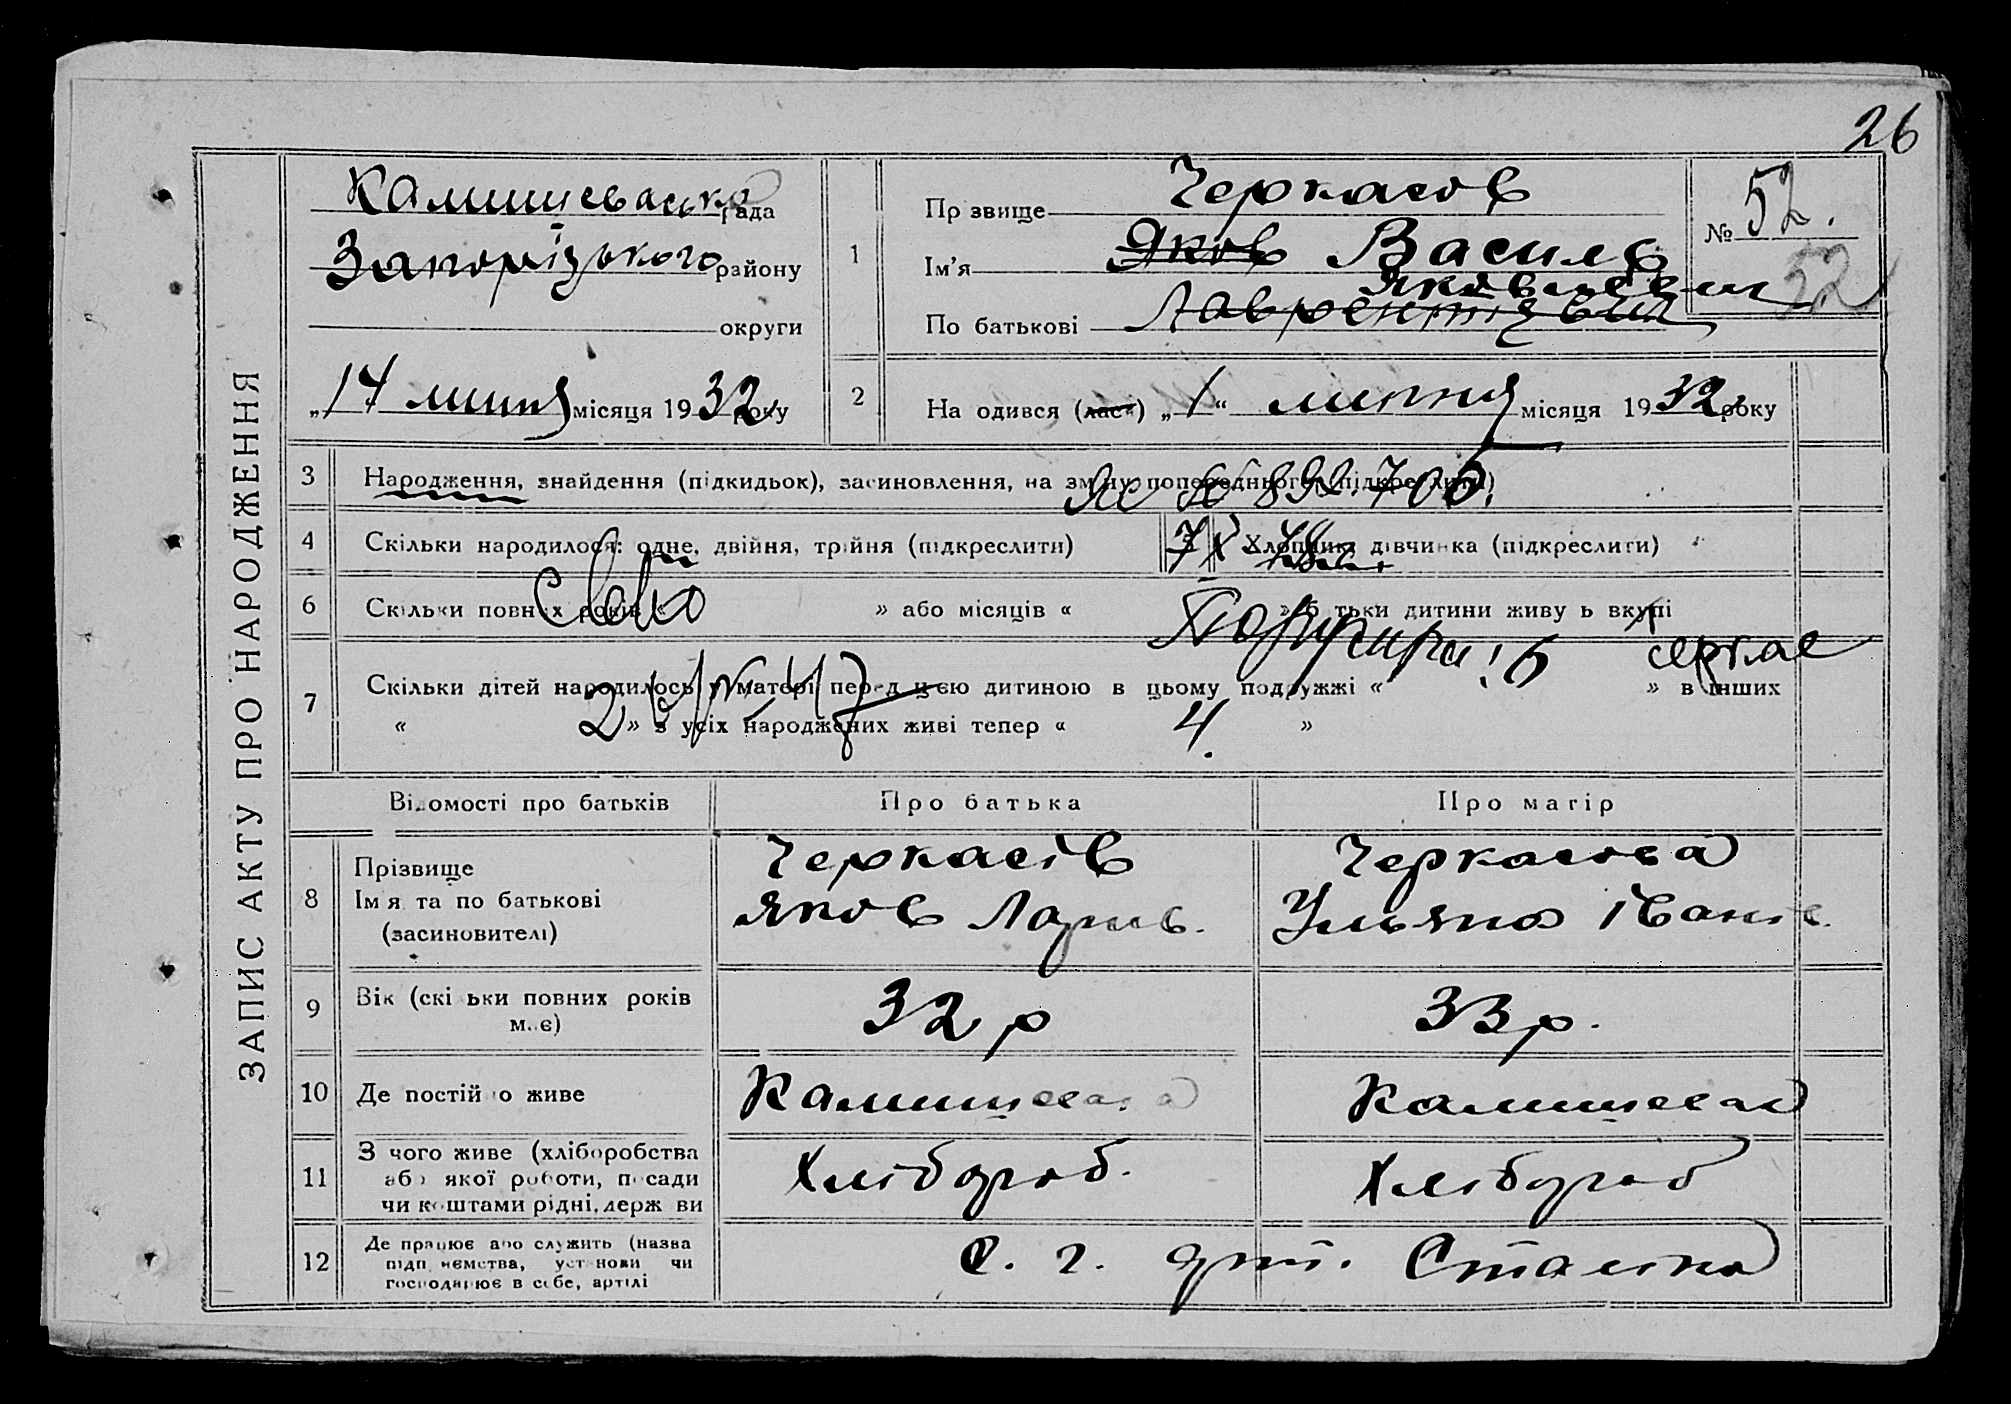 26
ЗАПИС АКТУ ПРО НАРОДЖЕННЯ
Камишеваська рада
Запорізького району
округи
„14 липня місяця 1932 року
1
Прізвище Черкасов
Ім'я Яков Василь
Яковлевич
По батькові Лаврентієвич
№ 52.
52
2
На одився (лась) „1“ липня місяця 1932 року
3
Народження, знайдення (підкидьок), засиновлення, на зміну попереднього (підкреслити)
892706.
4
Скільки народилося: одне, двійня, трійня (підкреслити)
Хлопчика дівчинка (підкреслити)
6
Скільки повних років «
» або місяців «
» Б тьки дитини живу ь вкупі
7
Скільки дітей народилось у матері перед цією дитиною в цьому подружжі «
6
» в інших
« 2 » з усіх народжених живі тепер « 4. »
Відомості про батьків
Про батька
Про матір
8
Прізвище
Ім я та по батькові
(засиновителі)
Черкасів
Яков Ларив.
Черкасова
Ульяна Іванів.
9
Вік (скі ьки повних років
має)
32 р
33 р.
10
Де постій о живе
Камишеваха
Камишевах
11
З чого живе (хліборобства
або якої роботи, посади
чи коштами рідні, держ ви
Хлібороб.
Хлібороб
12
Де працює або служить (назва
підп иємства, установи чи
господарює в себе, артілі
С. г. арт. Сталіна